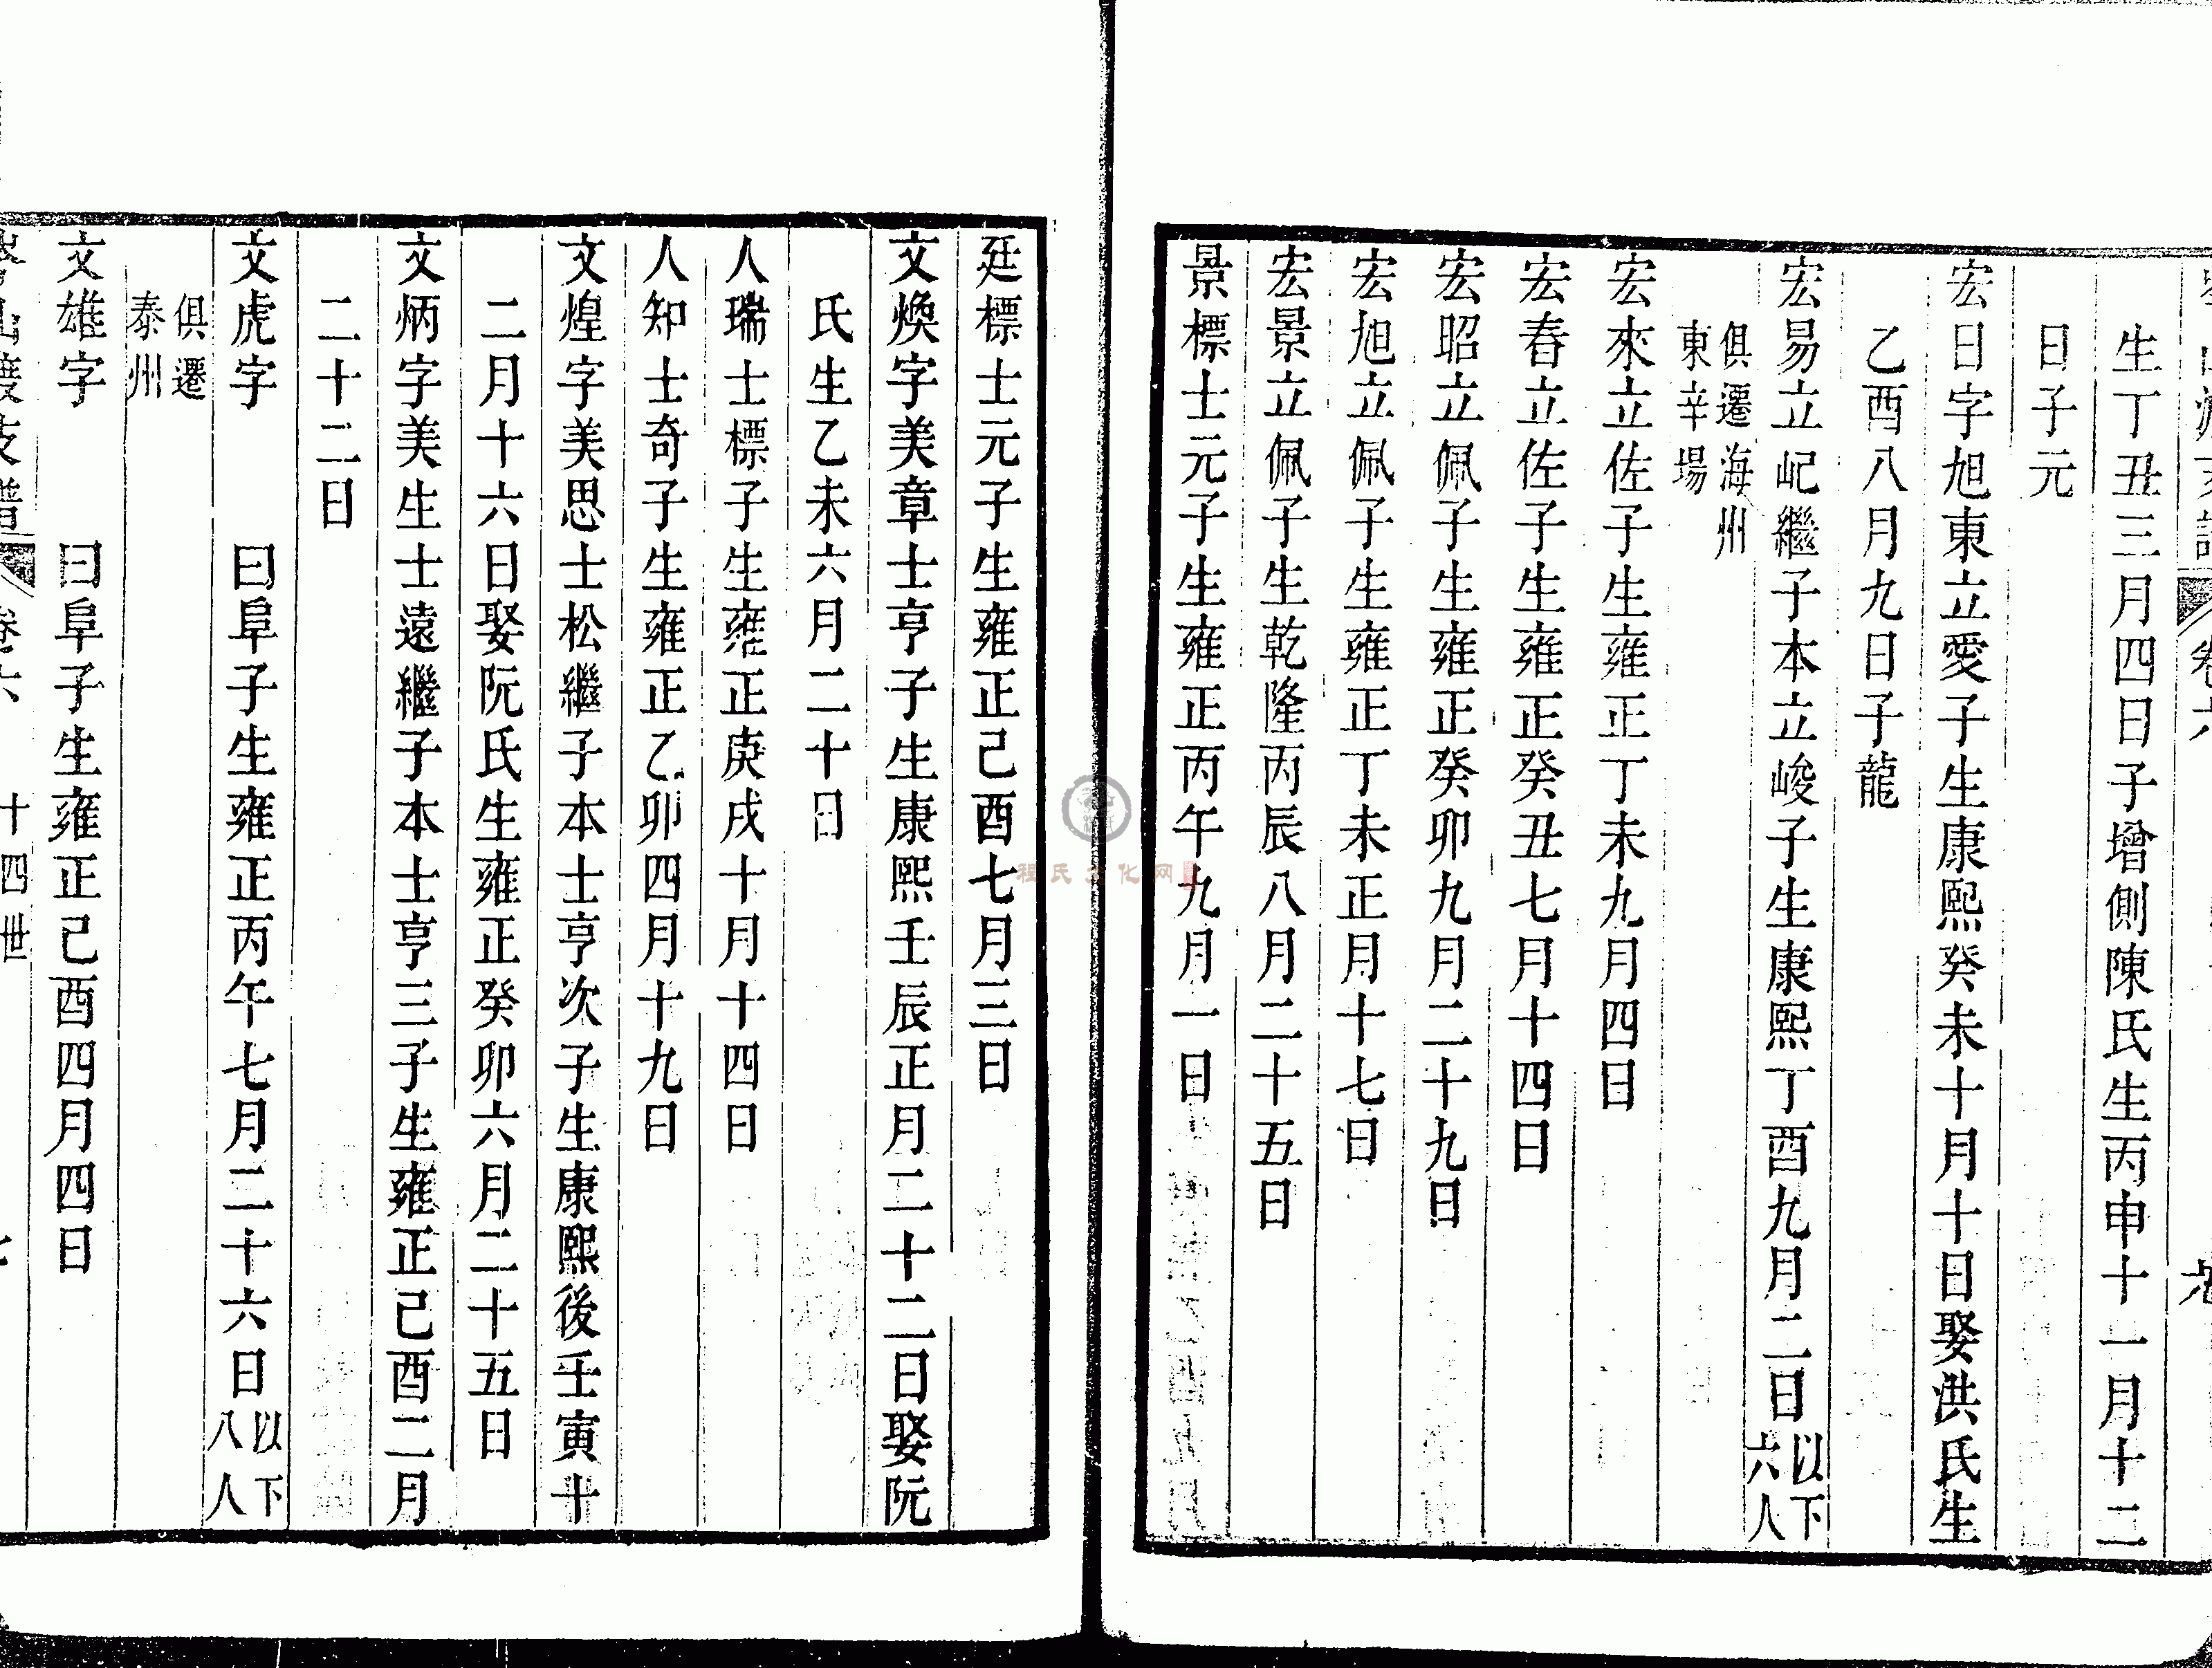 卷六
生丁丑三月四日子增側陳氏生丙申十一月十二
日子元
宏日字旭東立愛子生康熙癸未十月十日娶洪氏生
乙酉八月九日子龍
宏易立屺繼子本立峻子生康熙丁酉九月二日以下六人
俱遷海州東辛場
宏來立佐子生雍正丁未九月四日
宏春立佐子生雍正癸丑七月十四日
宏昭立佩子生雍正癸卯九月二十九日
宏旭立佩子生雍正丁未正月十七日
宏景立佩子生乾隆丙辰八月二十五日
景標士元子生雍正丙午九月一日
廷標士元子生雍正己酉七月三日
文煥字美章士亨子生康熙壬辰正月二十二日娶阮
氏生乙未六月二十日
人瑞士標子生雍正庚戌十月十四日
人知士奇子生雍正乙卯四月十九日
文煌字美思士松繼子本士亨次子生康熙後壬寅十
二月十六日娶阮氏生雍正癸卯六月二十五日
文炳字美生士遠繼子本士亨三子生雍正己酉二月
二十二日
文虎字 曰阜子生雍正丙午七月二十六日以下八人
俱遷泰州
文雄字 曰阜子生雍正己酉四月四日
卷六 十四世
程氏文化网